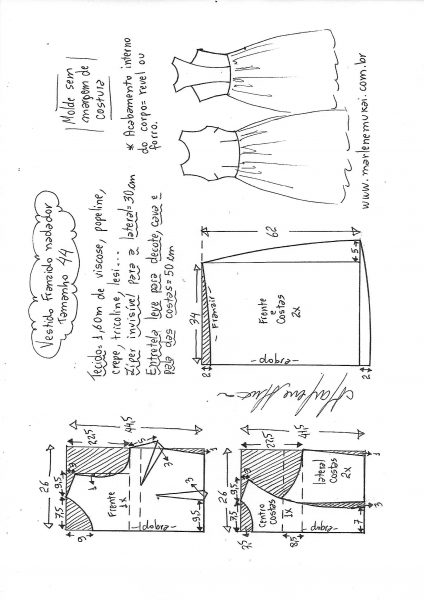 Vestido Franzido nadador
Tamanho 44
Molde sem
margem de
costura
* Acabamento interno
do corpo= revel ou
forro.
Tecido= 1,60m de viscose, popeline,
crepe, tricoline, lesi...
Zíper invisível para a lateral= 30cm
Entretela leve para decote, cava e
pala das costas= 50 cm
www.marlenemukai.com.br
62
5
34
- Franzir -
Frente
e
Costas
2x
-dobra-
2
2
44,5
22,5
26
9,5
7,5
3
1
Frente
1x
15
3
3
9,5
-dobra-
9
1
41,5
22,5
26
9,5
7,5
3
centro
costas
1x
lateral
costas
2x
8,5
-dobra-
7
3
3,5
1